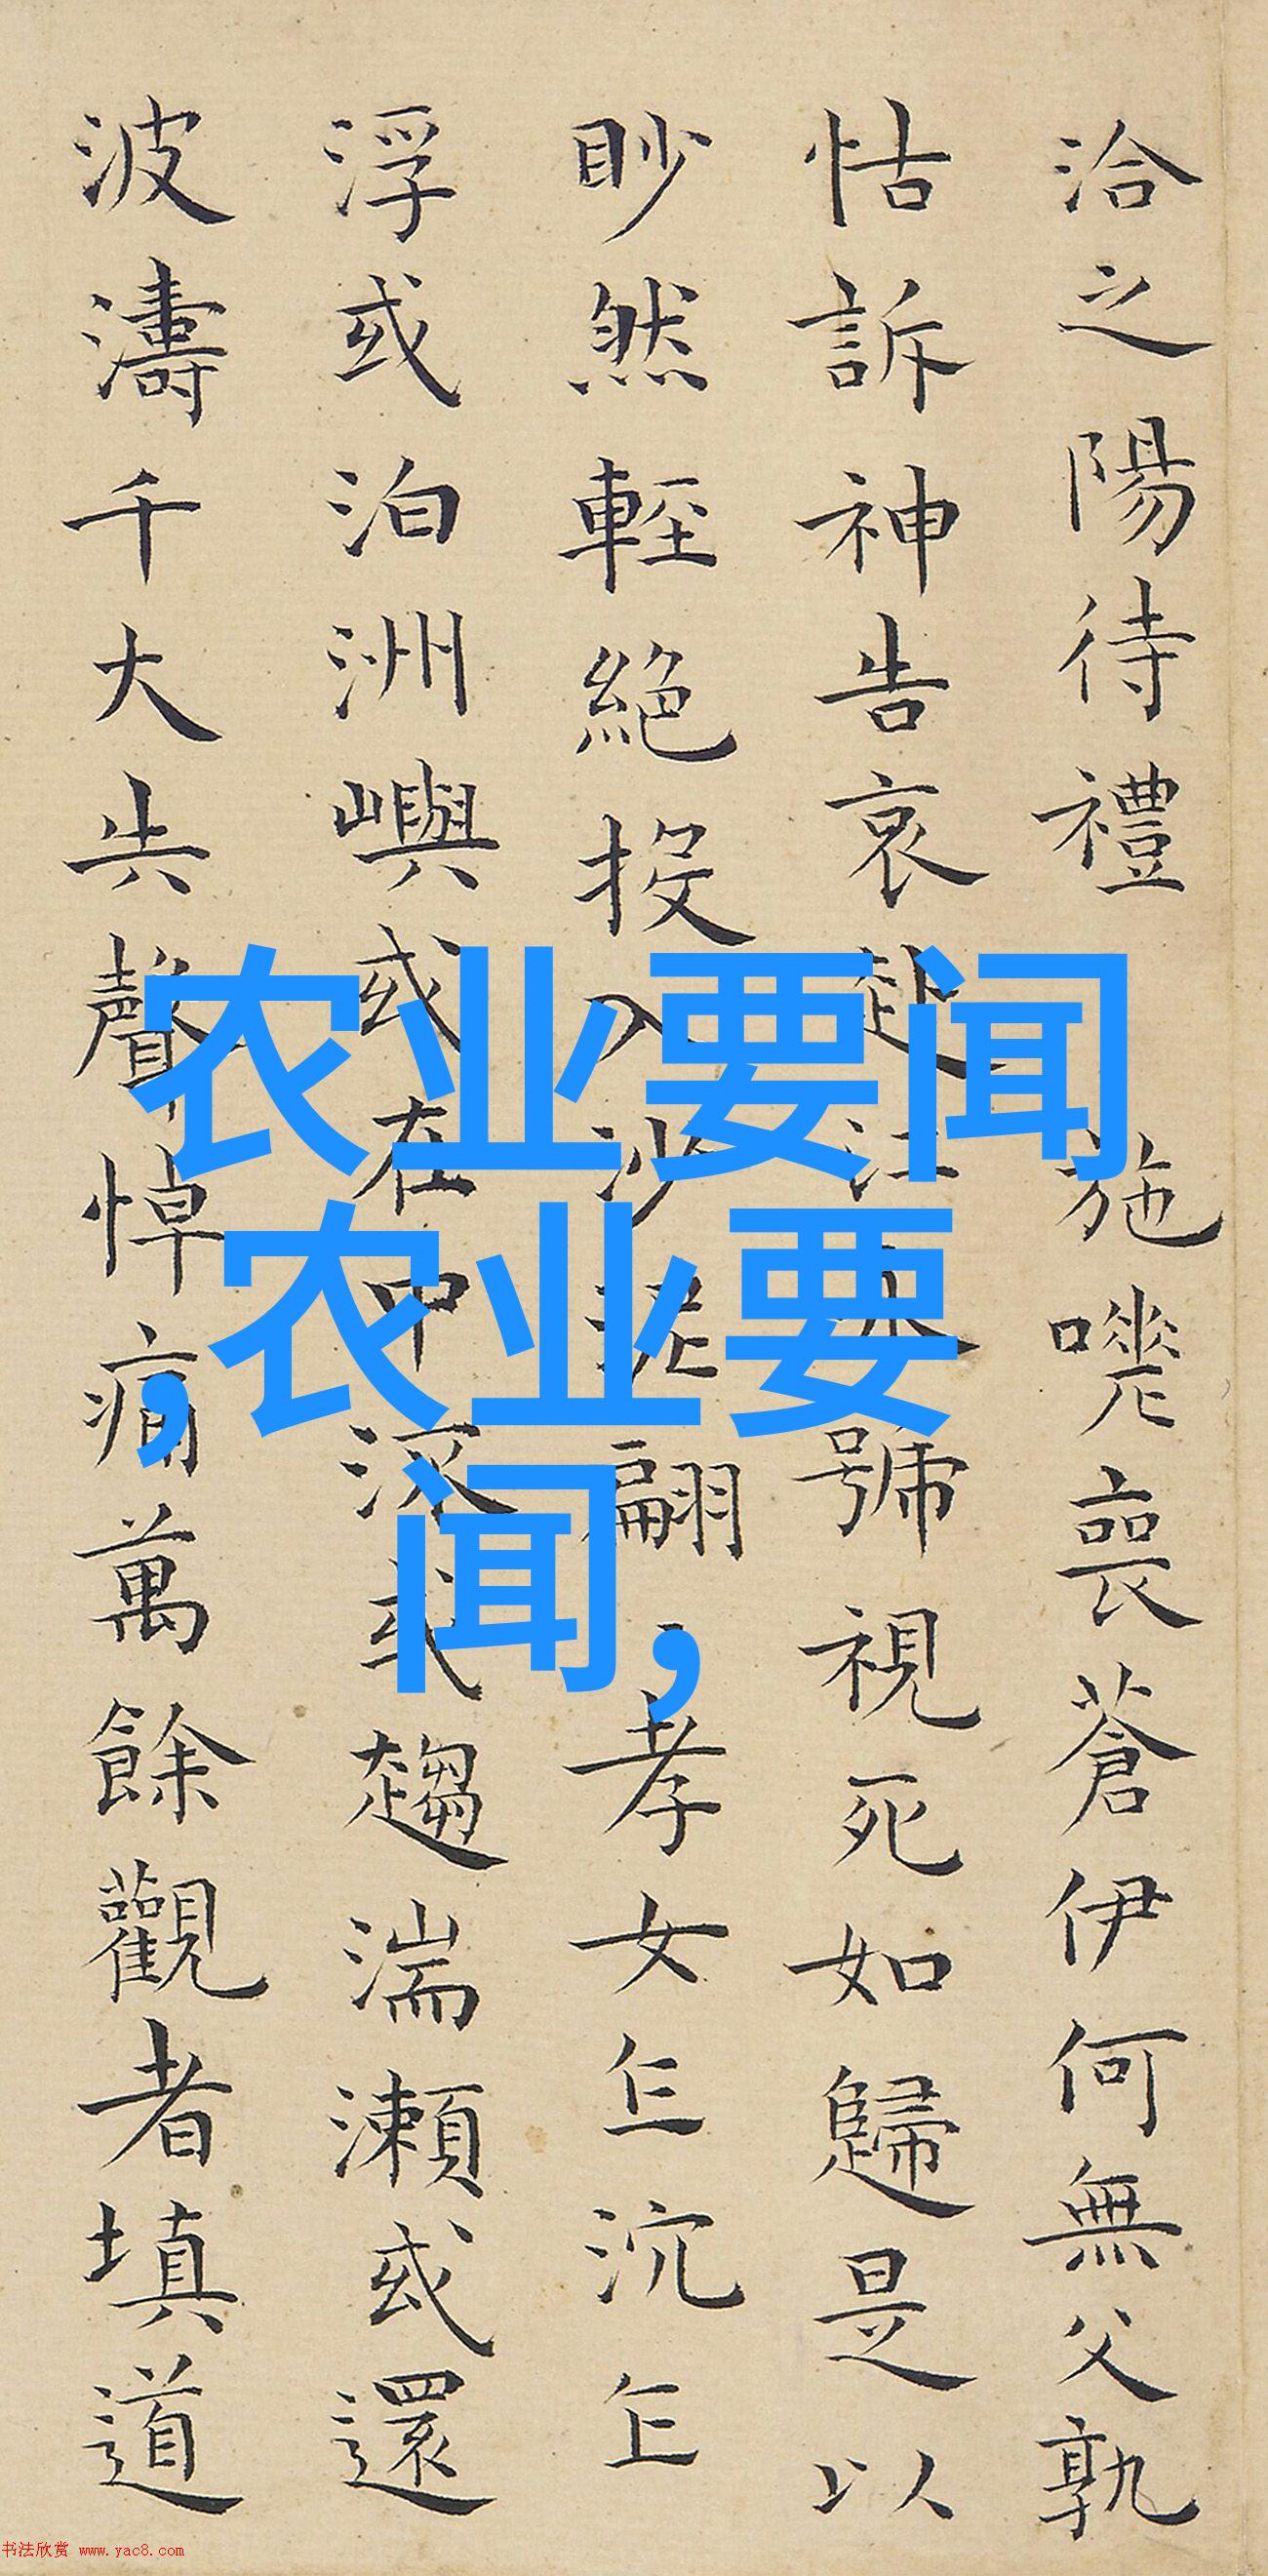 洽之陽待禮施嗟喪蒼伊何無父孰
怙訴神告哀赴江永號視死如歸是以
眇然輕絕投入沙泥翩孝女乍沉乍
浮或泊洲嶼或在中流或趨湍瀨或還
波濤千大失聲悼痛萬餘觀者填道
农业要闻
,农业要
闻,
书法欣赏 www.yac8.com